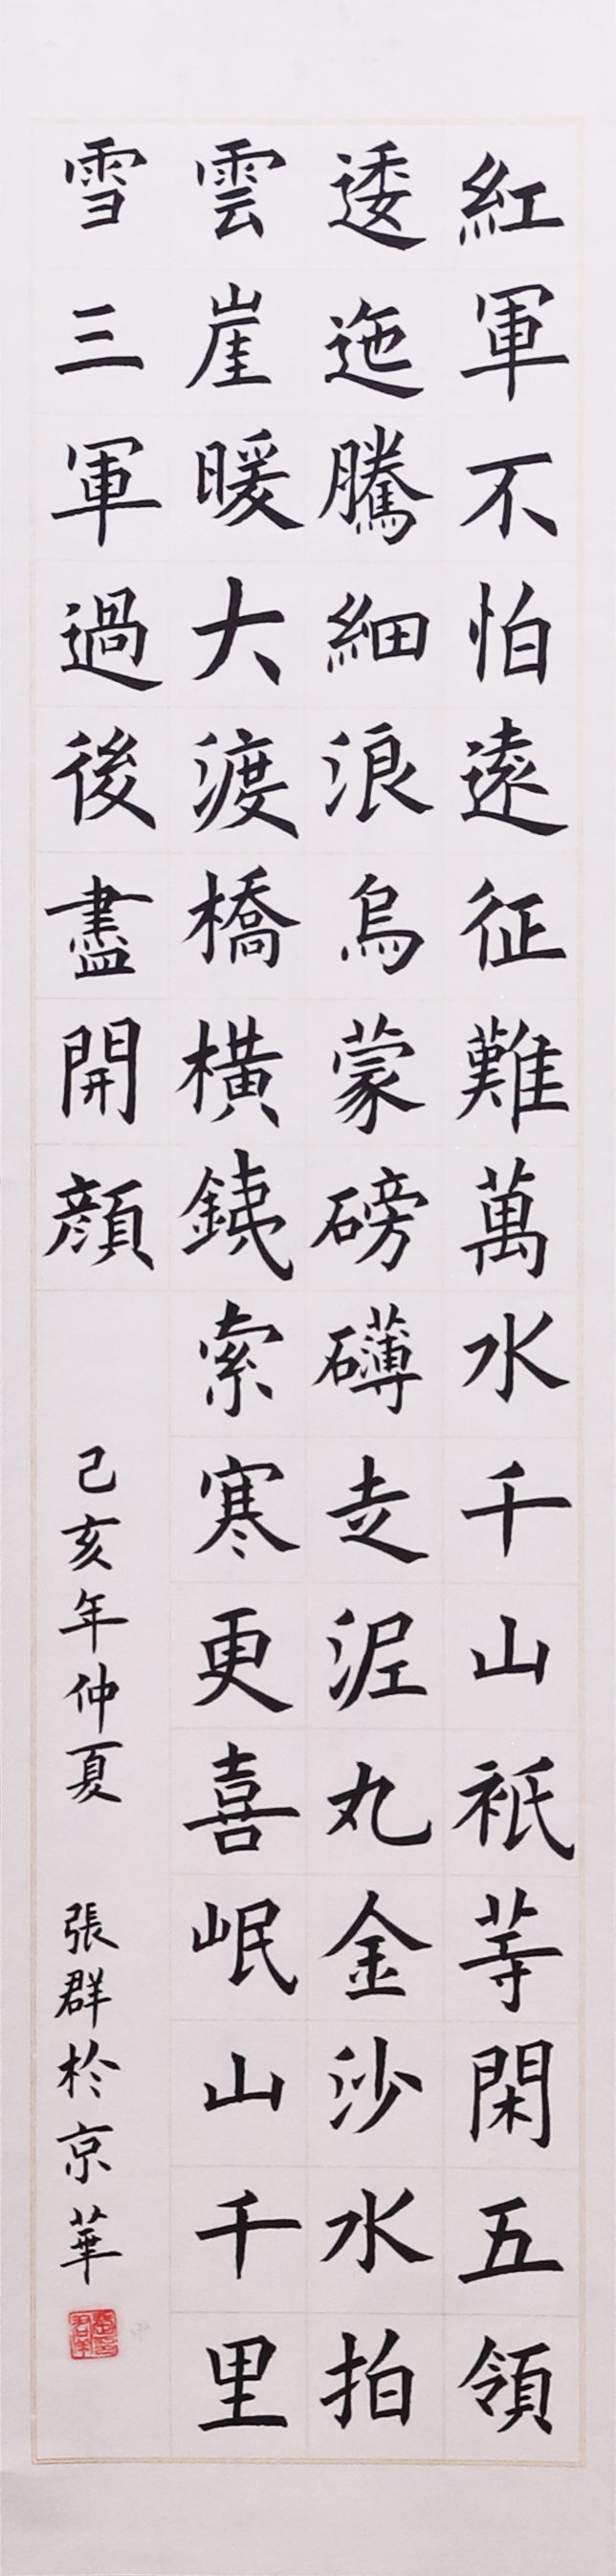 紅軍不怕遠征難萬水千山衹等閑五領
逶迤騰細浪烏蒙磅礴走泥丸金沙水拍
雲崖暖大渡橋橫鐵索寒更喜岷山千里
雪三軍過後盡開顏
己亥年仲夏 張群於京華